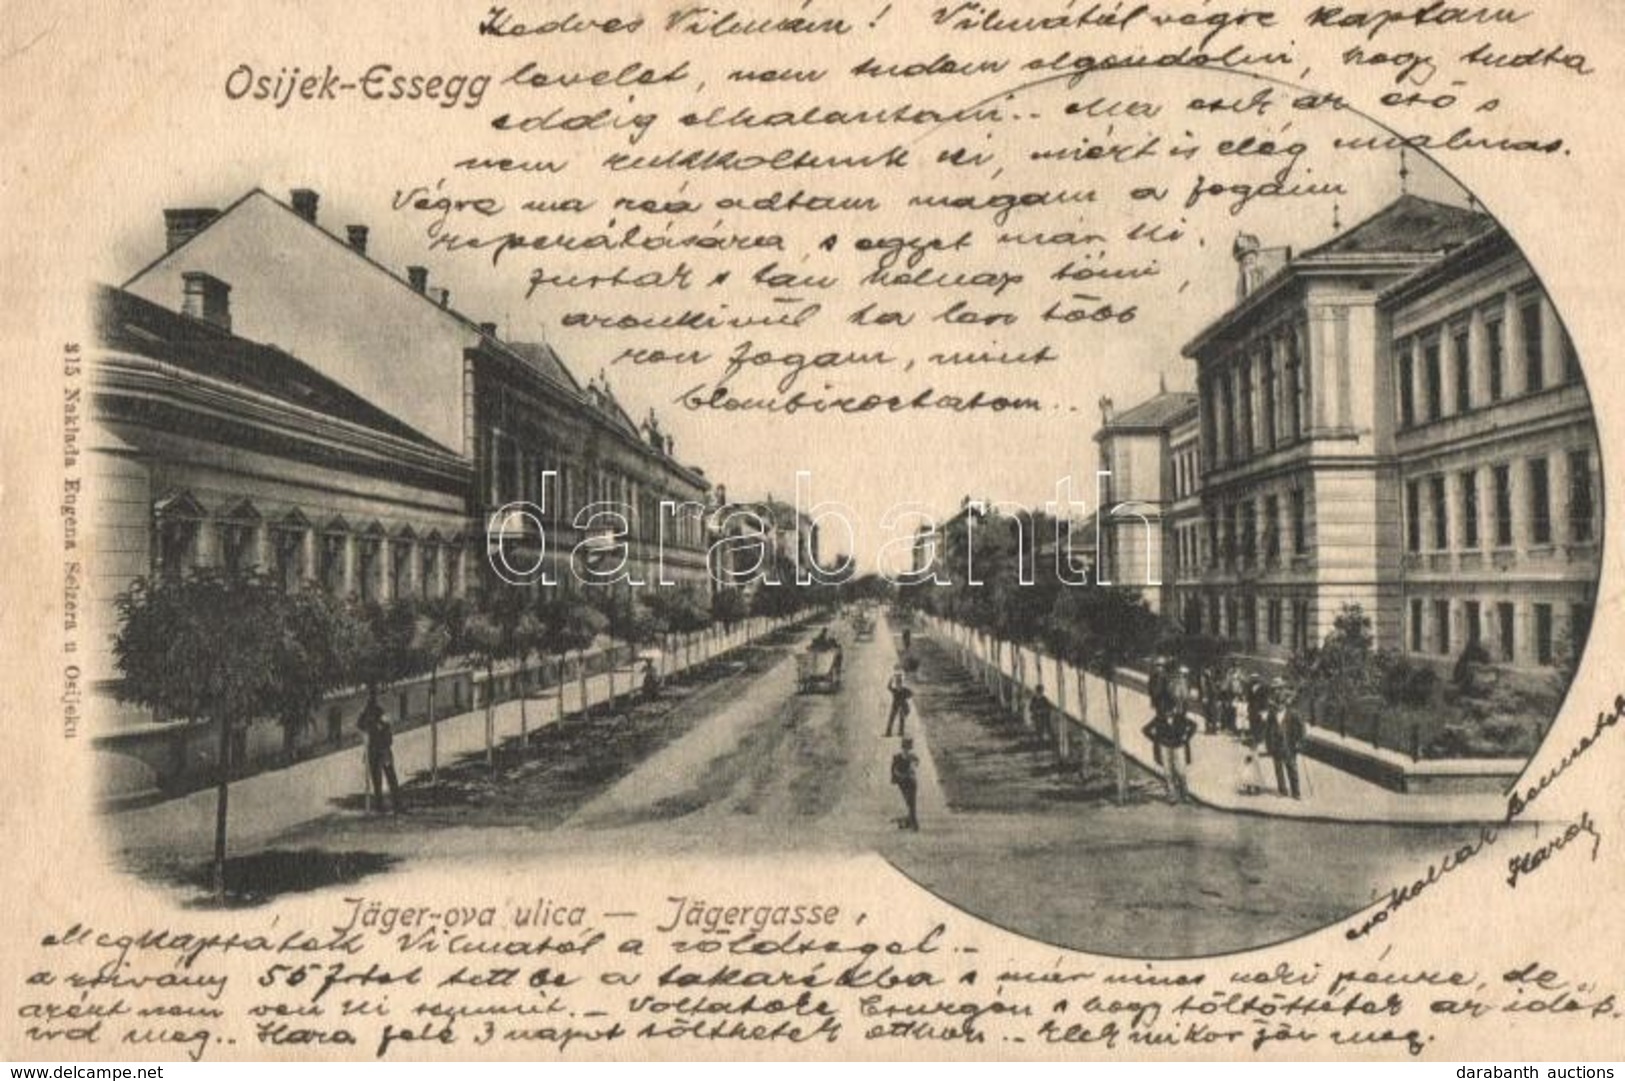 Kedves Vilmám! Vilmától végre kaptam
Osijek-Essegg
levelet, nem tudom elgondolni, hogy tudta
eddig elhalasztani.. Ma csak az eső s
nem rukkoltunk ki, miért is elég unalmas.
Végre ma reá adtam magam a fogaim
reperálására s egyet már ki,
s tán holnap tömi,
azonkivűl ha lesz több
rossz fogam, mint
blombiroztatom..
315 Naklada Eugena Seizera u Osijeku
darabanth
Jäger-ova ulica — Jägergasse
csókollak benneteket
Megkaptátok Vilmától a zöldséget.-
a szivány 55 frtot tett be a takarékba s már nincs neki pénze, de
azért nem vesz ki semmit.- Voltatok e s hogy töltöttétek az időt,
ird meg.. Hara felé 3 napot tölthetek otthon.. Elek mikor jön meg.
darabanth auctions